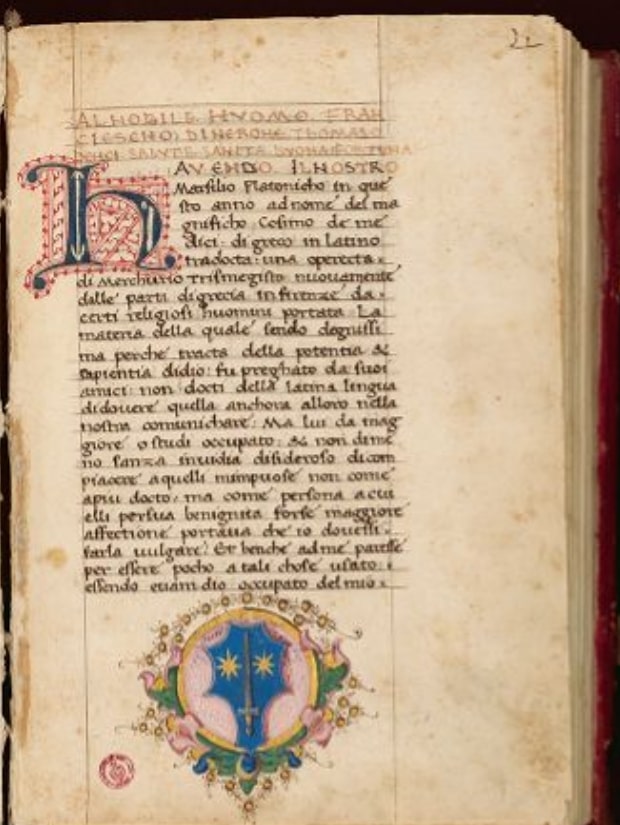 22
AL NOBILE HVOMO FRAN
CIESCHO DINERONE TOMASO
BENCI SALVTE SANITA BVONA FORTVNA
HAVENDO IL NOSTRO
Marsilio Platonicho in que
sto anno adnome del ma
gnificho Cosimo de me
dici: di greco in latino
tradocta: una operecta
di Merchurio trismegisto nuouamente
dalle parti digrecia infirenze da
certi religiosi huomini portata. La
materia della quale sendo degnissi
ma perche tracta della potentia &
sapientia didio: fu preghato da suoi
amici: non docti della latina lingua
didouere quella anchora alloro nella
nostra comunichare. Ma lui da mag
giore ostudi occupato: & non dime
no sanza inuidia disideroso dicom
piacere aquelli mimpuose non come
apiu docto: ma come persona acui
elli persua benignita forse maggiore
affectione portaua che io douessi
farla uulgare. Et benche adme paresse
per essere pocho atali chose usato:
essendo etiam dio occupato del mio